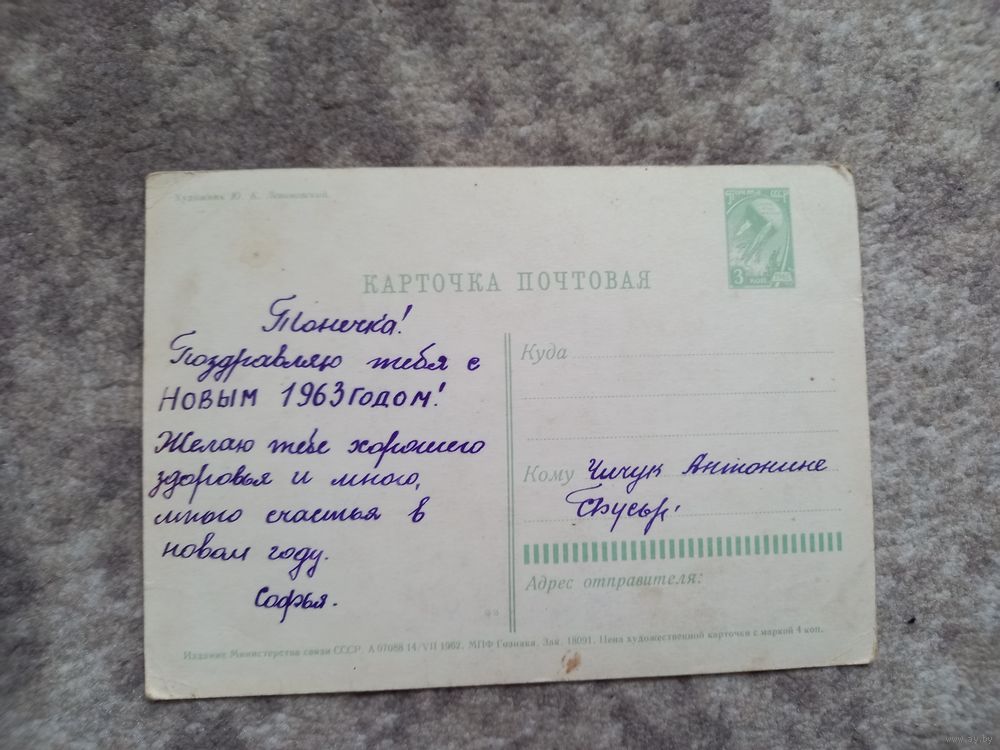 Художник Ю. К.
ПОЧТА СССР
3 КОП
КАРТОЧКА ПОЧТОВАЯ
Тонечка!
Поздравляю тебя с
НОВЫМ 1963 ГОДОМ!
Желаю тебе хорошего
здоровья и много,
много счастья в
новом году.
Софья.
Куда
Кому Чичук Антонине
Адрес отправителя:
Издание Министерства связи СССР. А 07088 14/VII 1962. МПФ Гознака. Зак. 18091. Цена художественной карточки с маркой 4 коп.
www.ay.by